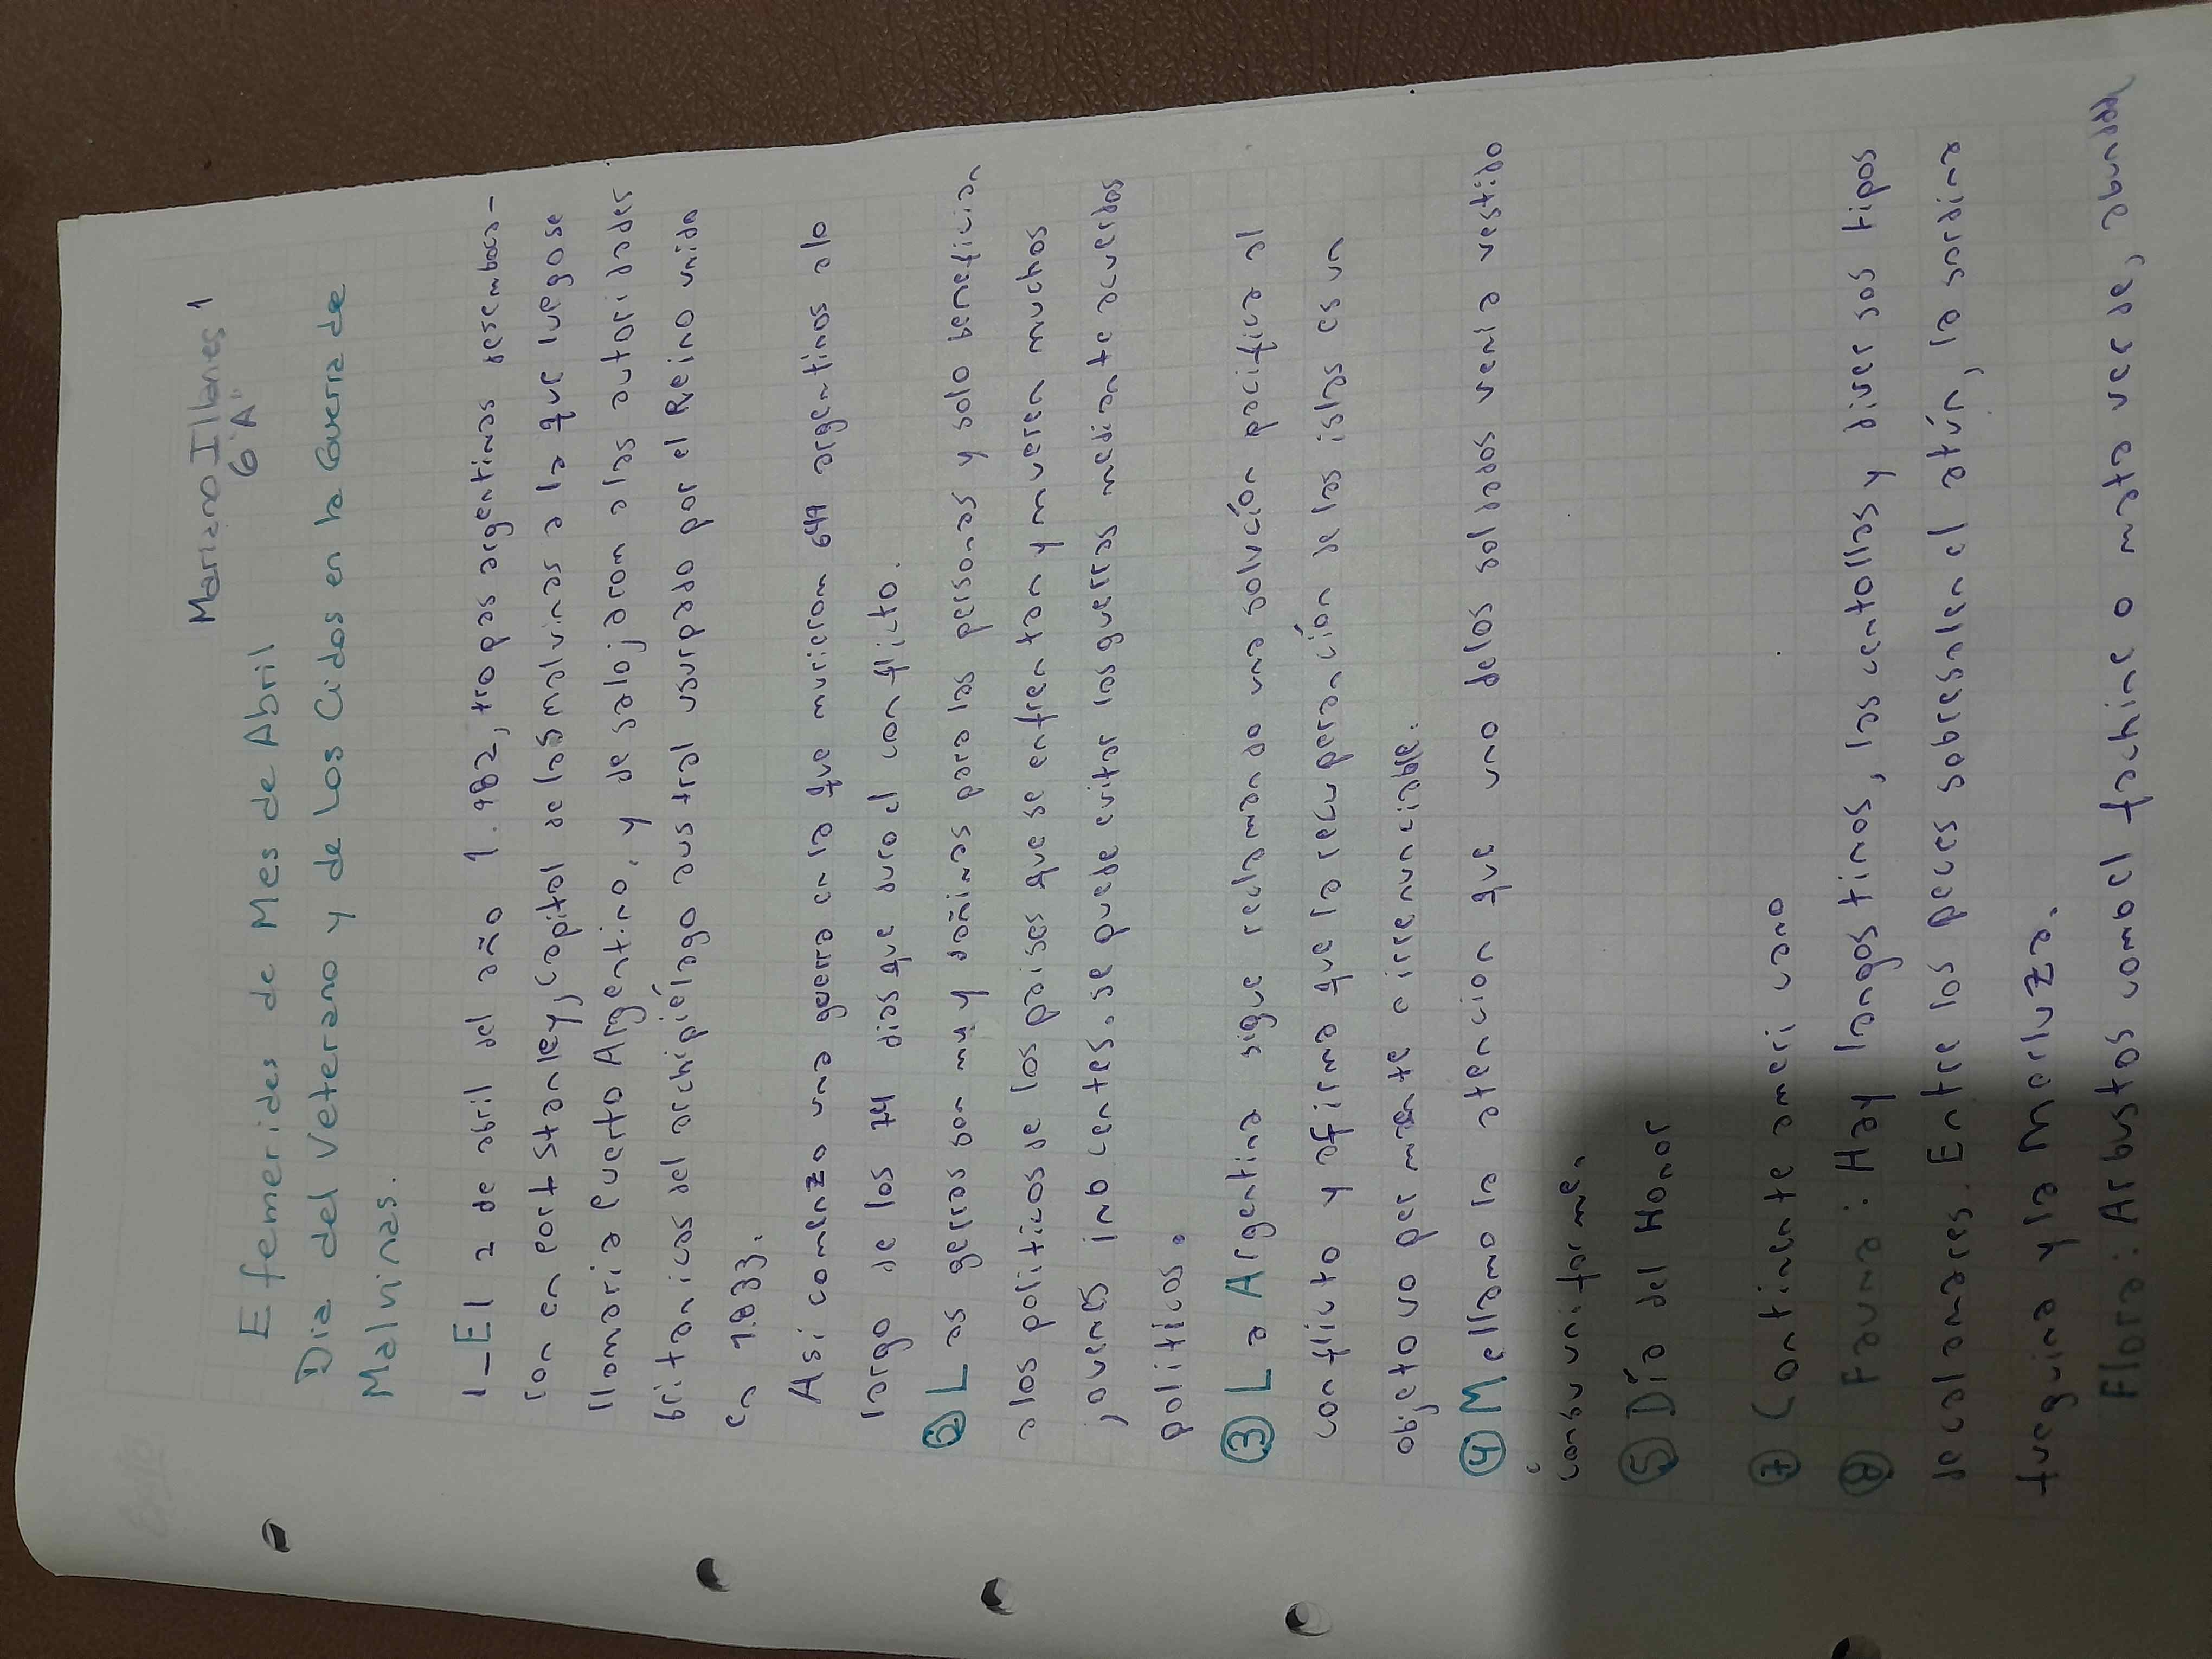 Mariano Illanes 1
6"A"
Efemerides de Mes de Abril
Dia del Veterano y de Los Cidos en la Guerra de
Malvinas.
1_El 2 de abril del año 1.982, tropas argentinas desembaca-
ron en port Stanley, capital de las malvinas a la que luego se
llamaria Puerto Argentino, y desalojarom a las autoridades
britanicas del archipiélago austral usurpado por el Reino unido
en 1.833.
Así comenzo una guerra en la que murierom 649 argentinos a lo
largo de los 74 dias que duro el conflicto.
② Las gerras son muy dañinas para las personas y solo benefician
a los politicos de los paises que se enfrentan y mueren muchos
jovenes inocentes. se puede evitar las guerras mediante acuerdos
politicos.
③ La Argentina sigue reclamando una solución pacifica al
conflicto y afirma que la recuperación de las islas es un
objetovo permanente e irrenunciable.
④ Me llamo la atención que uno de los soldados venia vestido
con su uniforme.
⑤ Día del Honor
⑦ Continente americano
⑧ Fauna: Hay langostinos, las centollas y diversos tipos
de calamares. Entre los peces sobresalen el atún, la sardina
fueguina y la Merluza.
Flora: Arbustos como el fachine o mata verde,